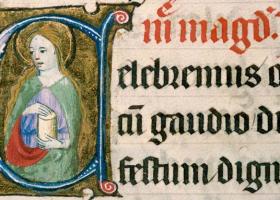 magd.
Celebremus
cū gaudio
festum dign